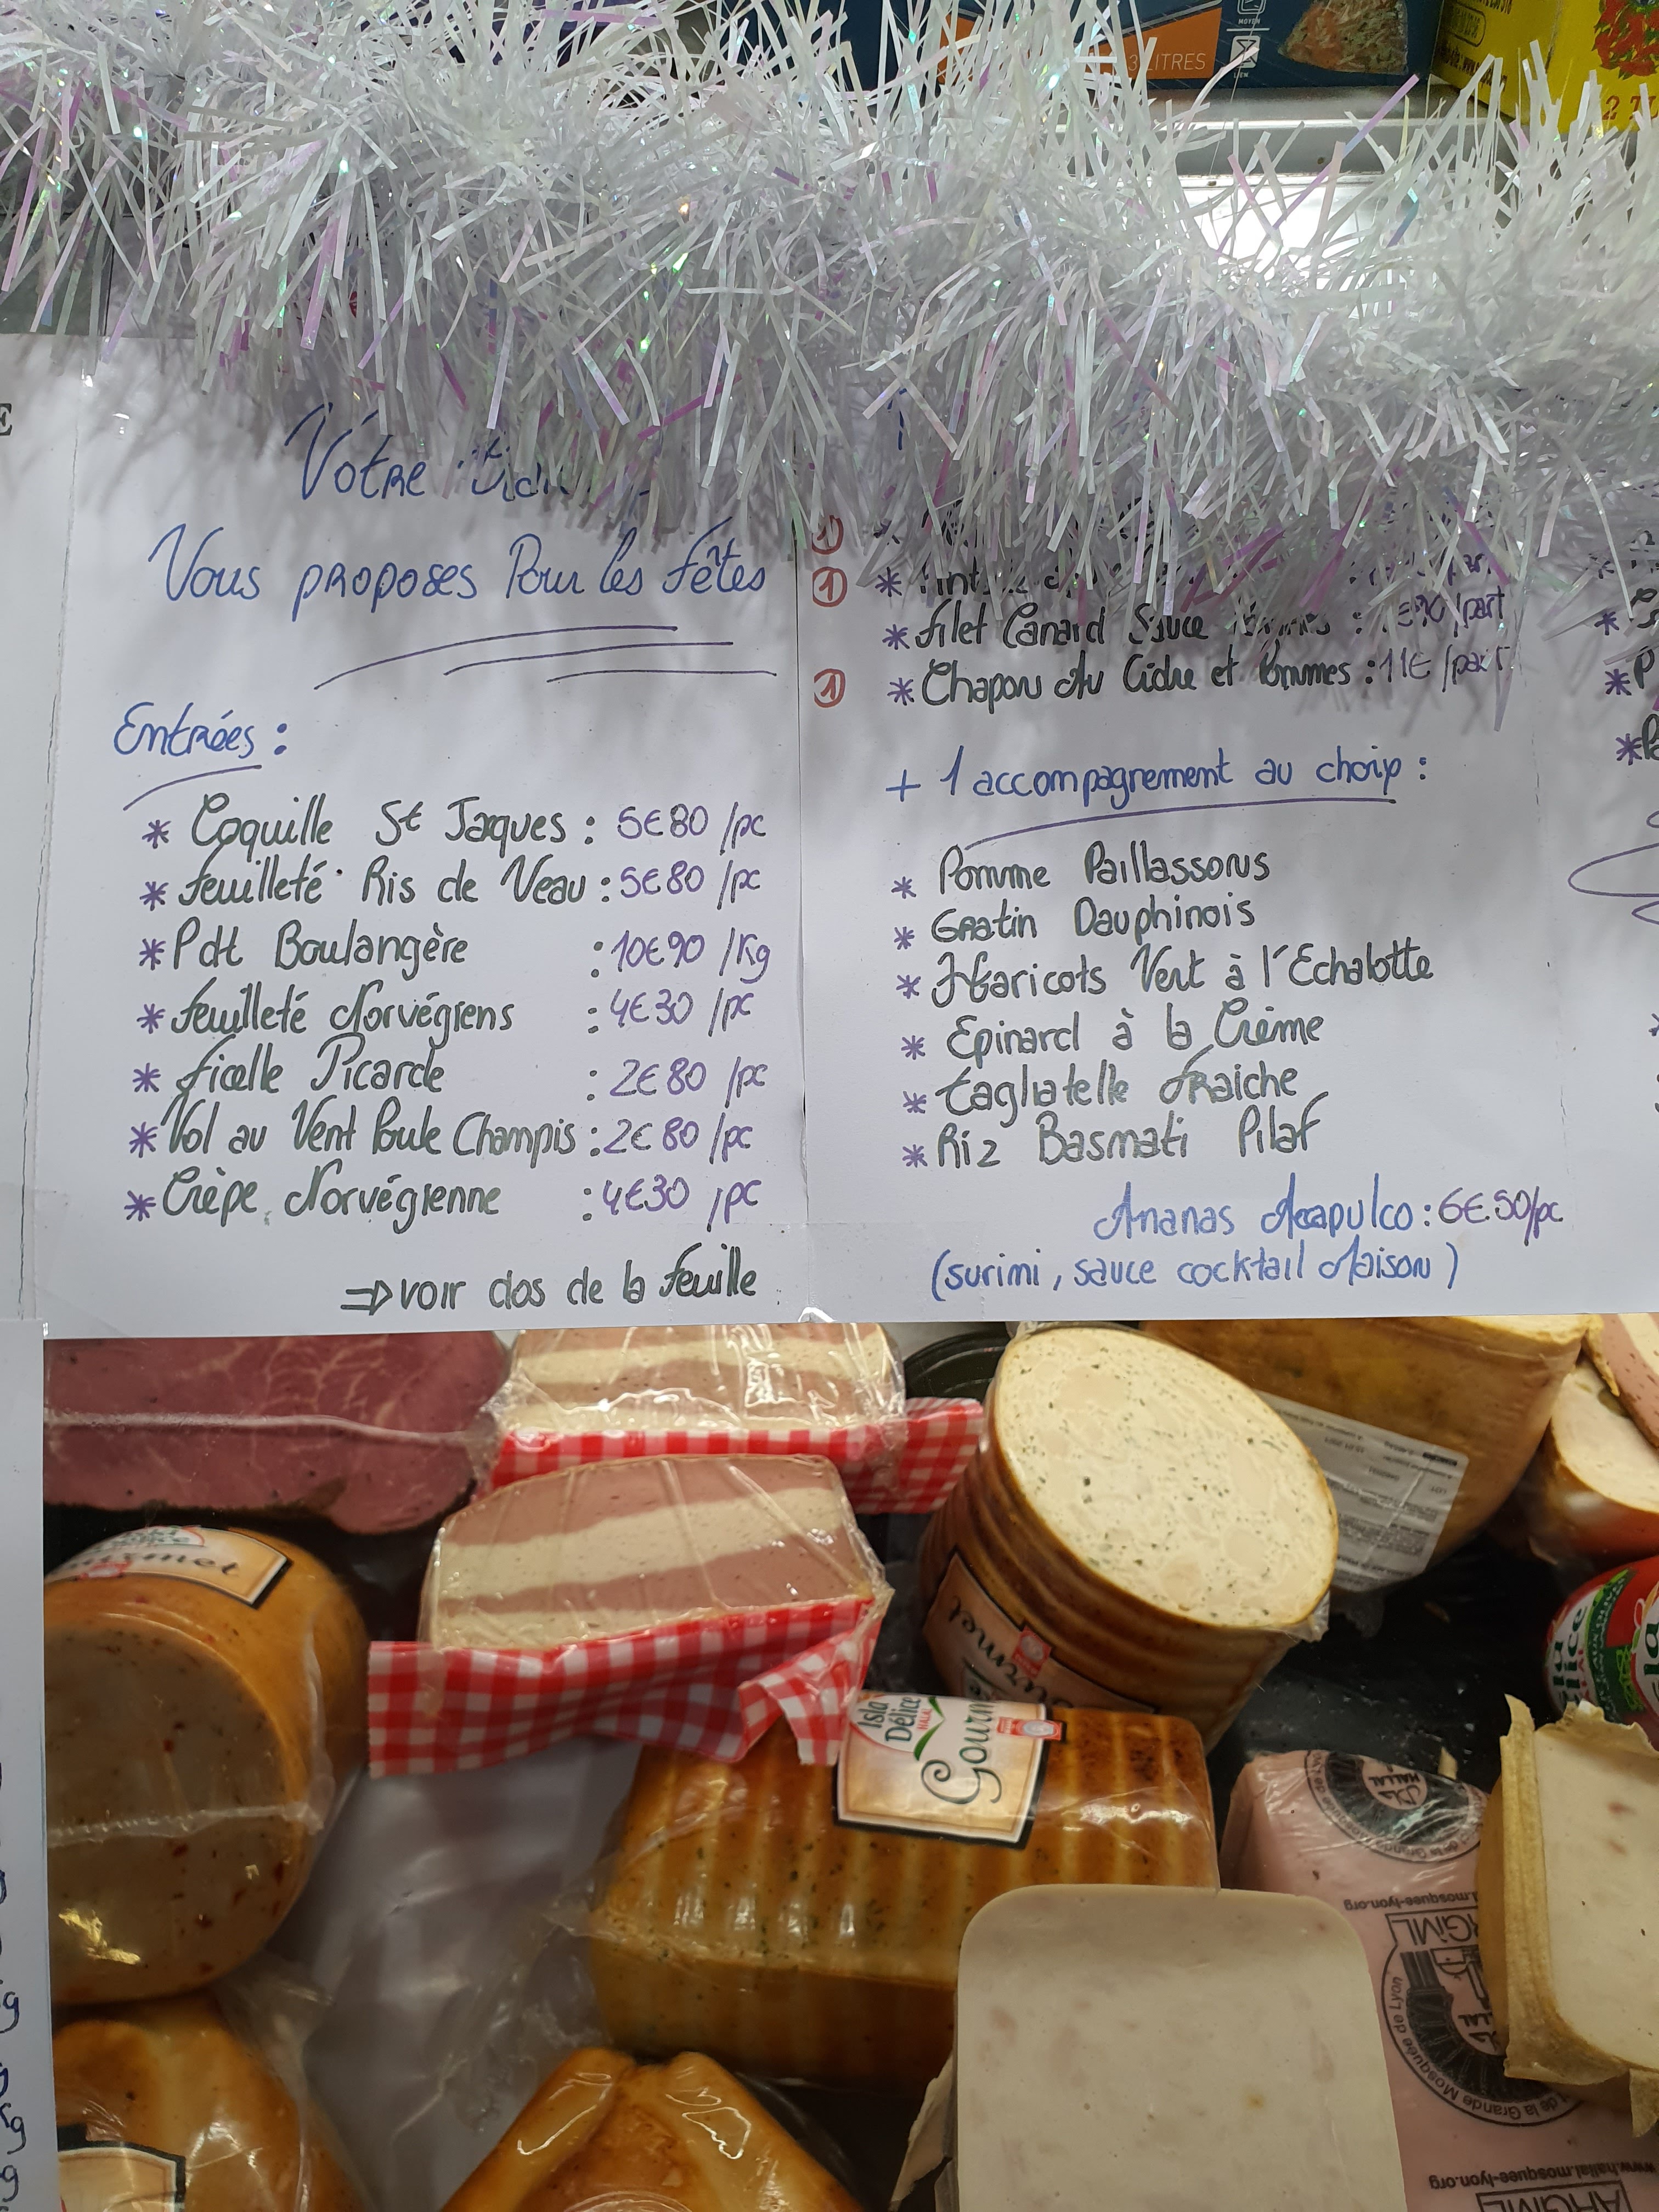 MOYEN
3 LITRES
Votre
Vous proposes Pour les fêtes
Entrées :
* Coquille St Jaques : 5€80 /pc
* feuilleté Ris de Veau : 5€80 /pc
* Pdt Boulangère : 10€90 /Kg
* feuilleté Norvégiens : 4€30 /pc
* ficelle Picarde : 2€80 /pc
* Vol au Vent Poule Champis : 2€80 /pc
* Crèpe Norvégienne : 4€30 /pc
⇒ voir dos de la feuille
1
1 *
* filet Canard Sauce : /part
1 * Chapon Au Cidre et Pommes : 11€ /part
+ 1 accompagnement au choix :
* Pomme Paillassons
* Gratin Dauphinois
* Haricots Vert à l'Echalotte
* Epinard à la Crème
* tagliatelle fraiche
* Riz Basmati Pilaf
Ananas Acapulco : 6€50/pc
(surimi, sauce cocktail Maison)
Isla
Délice
HALAL
Gourm
HALLAL
ARGML
de la Grande Mosquée de Lyon
www.hallal.mosquee-lyon.org